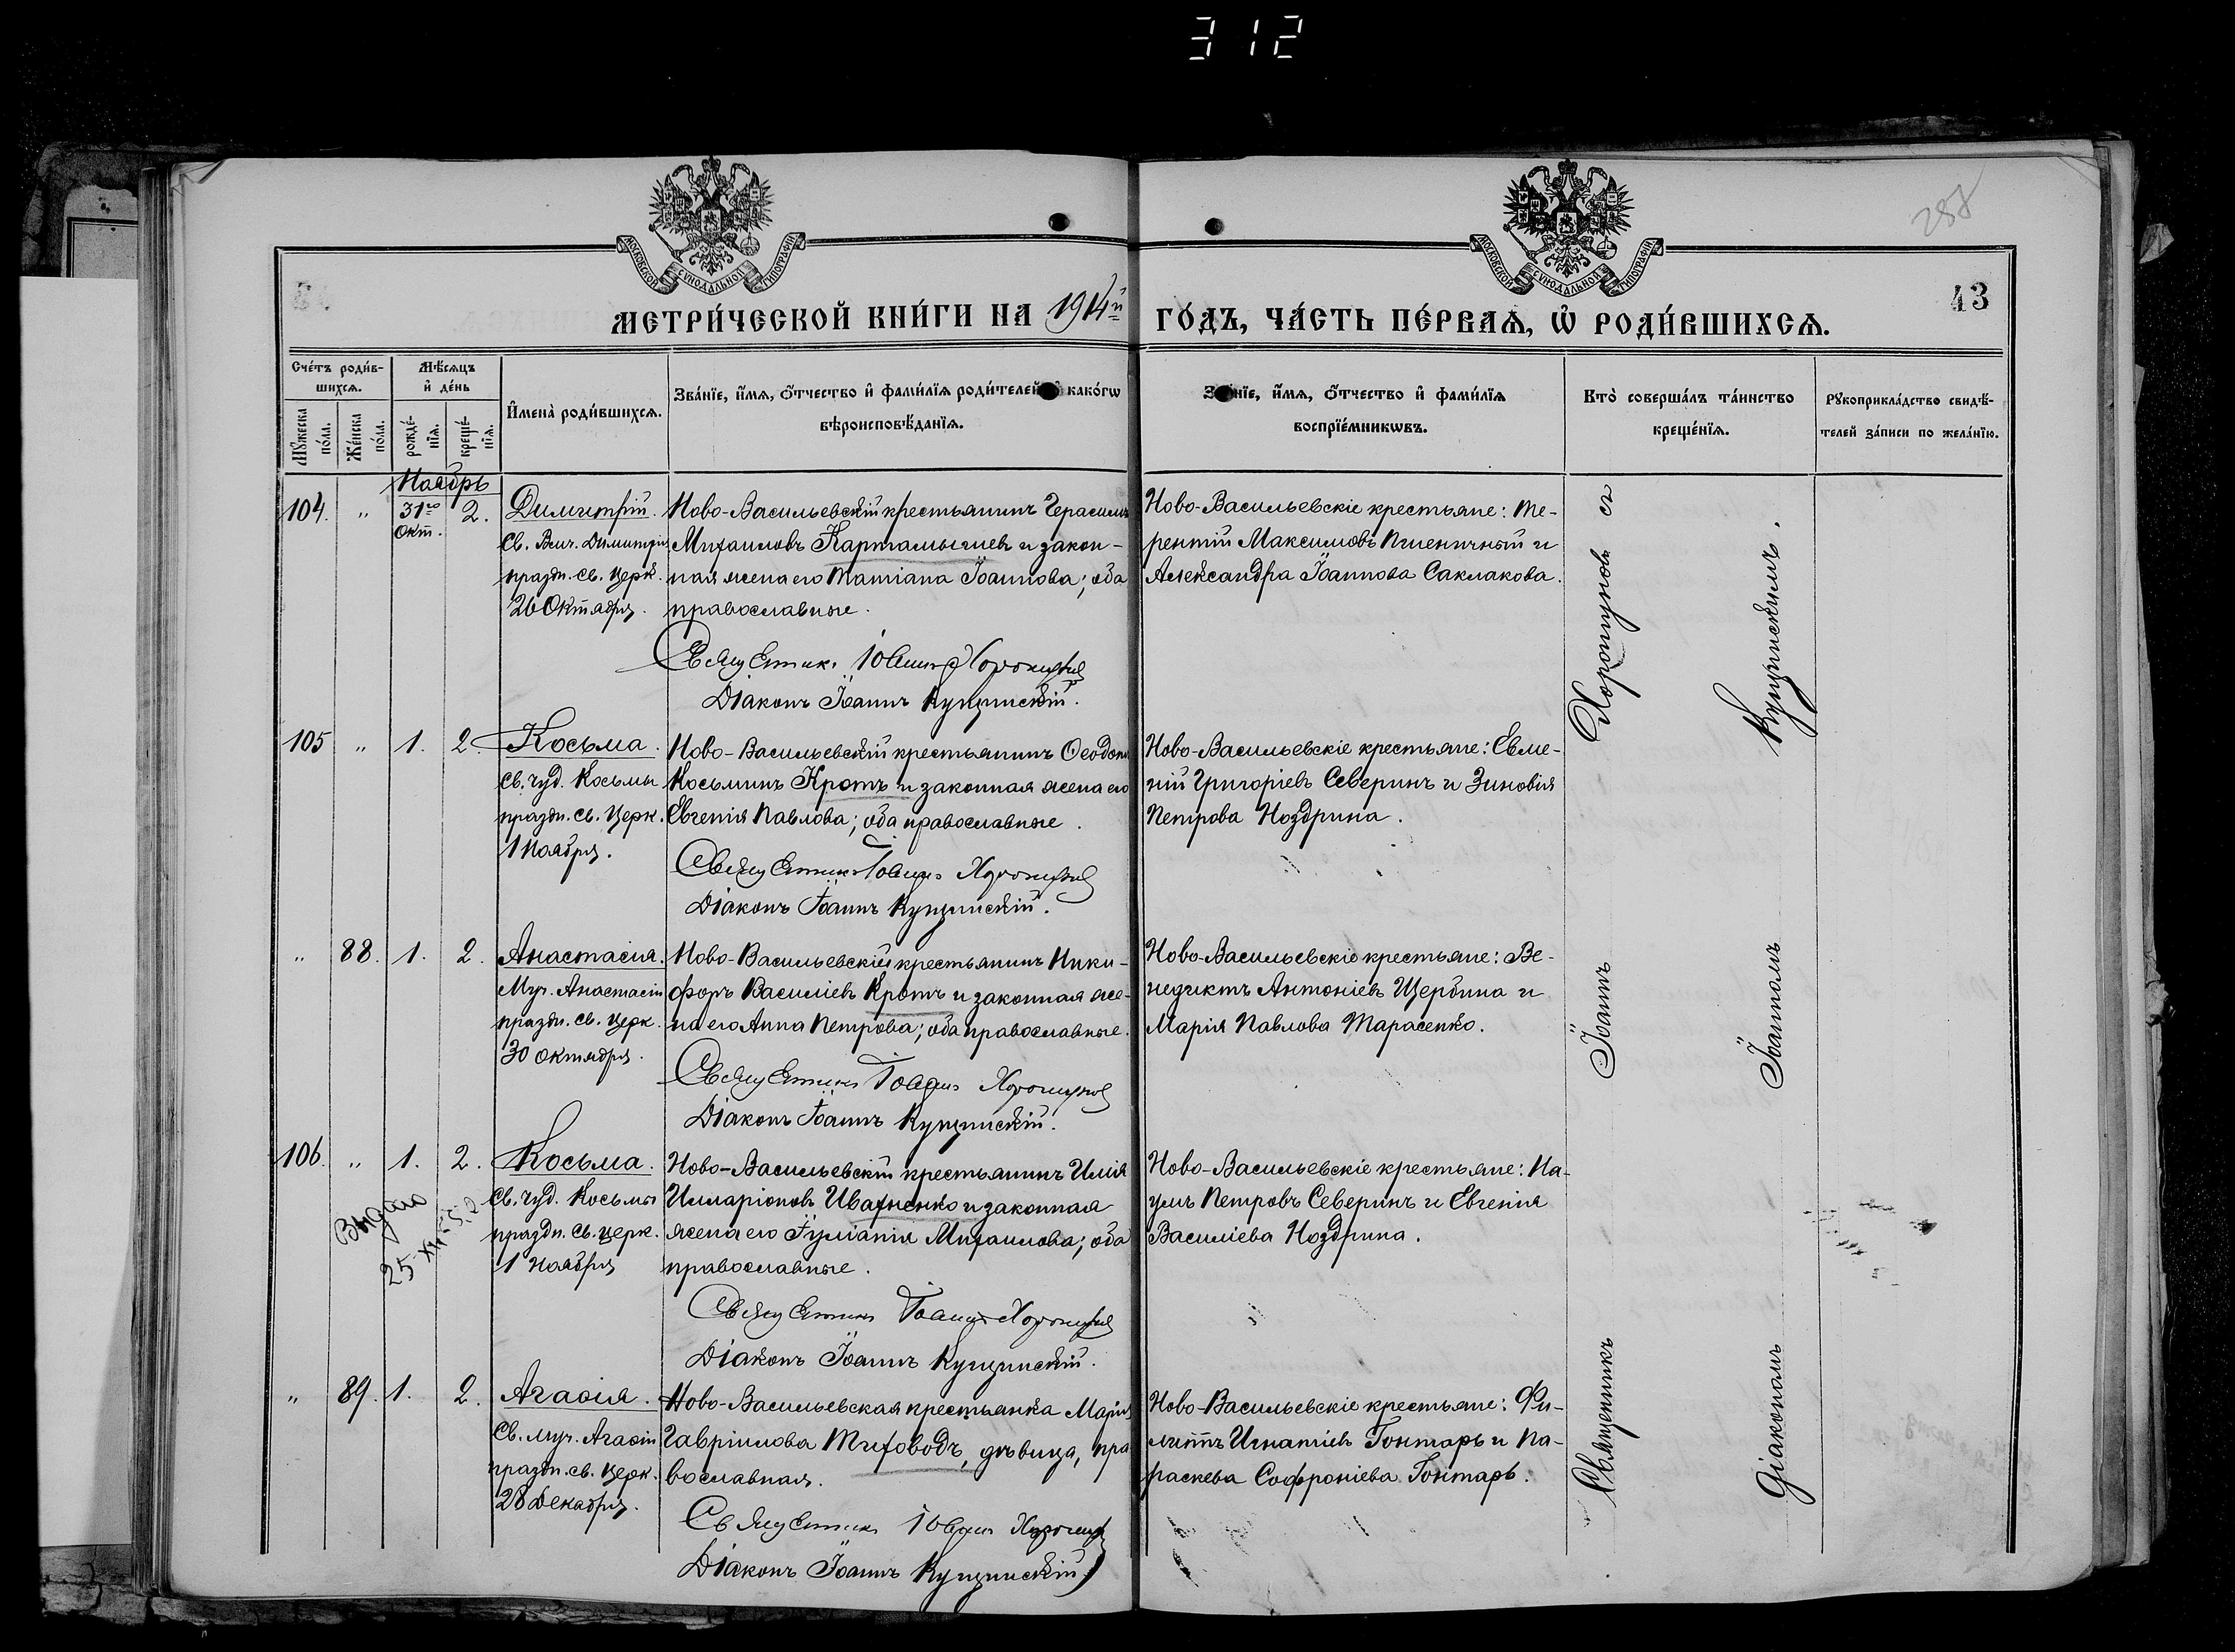 312
258
МОСКОВСКОЙ СѴНОДАЛЬНОЙ ТИПОГРАФІИ
МОСКОВСКОЙ СѴНОДАЛЬНОЙ ТИПОГРАФІИ
43
МЕТРИ́ЧЕСКОЙ КНИ́ГИ НА 1914й ГО́ДЪ, ЧА́СТЬ ПЕ́РВАѦ, Ѡ҆ РОДИ́ВШИХСѦ.
Сче́тъ роди́в-
шихсѧ.
Мꙋ́жеска по́ла.
Же́нска по́ла.
Мѣ́сѧцъ
и҆ де́нь
рожде́-
нїѧ.
креще́-
нїѧ.
И҆мена̀ роди́вшихсѧ.
Зва́нїе, и҆́мѧ, ѻ҆́тчество и҆ фами́лїѧ роди́телей и҆ како́гѡ
вѣроисповѣ́данїѧ.
Зва́нїе, и҆́мѧ, ѻ҆́тчество и҆ фами́лїѧ
воспрїе́мникѡвъ.
Кто̀ соверша́лъ та́инство
креще́нїѧ.
Рꙋкоприкла́дство свидѣ́-
телей за́писи по жела́нїю.
Ноябрь
104. " 31го Окт. 2.
Димитрій.
Св. Вмч. Димитрія
праздн. св. церк.
26 Октября.
Ново-Васильевскій крестьянинъ Герасимъ
Михаиловъ Картамышевъ и закон-
ная жена его Татіана Іоаннова; оба
православные.
Священникъ Іоаннъ Хорошуновъ
Діаконъ Іоаннъ Купчинскій.
Ново-Васильевскіе крестьяне: Те-
рентій Максимовъ Пшеничный и
Александра Іоаннова Саклакова.
105 " 1. 2.
Косьма.
Св. чуд. Косьмы
праздн. св. церк.
1 Ноября.
Ново-Васильевскій крестьянинъ
Косьминъ Кротъ и законная жена его
Евгенія Павлова; оба православные.
Священникъ Іоаннъ Хорошуновъ
Діаконъ Іоаннъ Купчинскій.
Ново-Васильевскіе крестьяне: Евме-
ній Григоріевъ Северинъ и Зиновія
Петрова Ноздрина.
" 88. 1. 2.
Анастасія.
Муч. Анастасіи
праздн. св. церк.
30 октября.
Ново-Васильевскій крестьянинъ Ники-
форъ Василіевъ Кротъ и законная же-
на его Анна Петрова; оба православные.
Священникъ Іоаннъ Хорошуновъ
Діаконъ Іоаннъ Купчинскій.
Ново-Васильевскіе крестьяне: Ве-
недиктъ Антоніевъ Щербина и
Марія Павлова Тарасенко.
106. " 1. 2.
Выдано
25
Косьма.
Св. чуд. Косьмы
праздн. св. церк.
1 ноября
Ново-Васильевскій крестьянинъ Илія
Илларіоновъ Ивахненко и законная
жена его Іуліанія Михаилова; оба
православные.
Священникъ Іоаннъ Хорошуновъ
Діаконъ Іоаннъ Купчинскій.
Ново-Васильевскіе крестьяне: На-
умъ Петровъ Северинъ и Евгенія
Василіева Ноздрина.
" 89. 1. 2.
Агаѳія.
Св. муч. Агаѳіи
праздн. св. церк.
28 декабря.
Ново-Васильевская крестьянка Марія
Гавріилова Тиховодъ, дѣвица, пра
вославная.
Священникъ Іоаннъ Хорошуновъ
Діаконъ Іоаннъ Купчинскій
Ново-Васильевскіе крестьяне: Фи-
липпъ Игнатіевъ Гонтарь и Па-
раскева Софроніева Гонтарь.
Священникъ Іоаннъ Хорошуновъ съ
Діакономъ Іоанномъ Купчинскимъ.